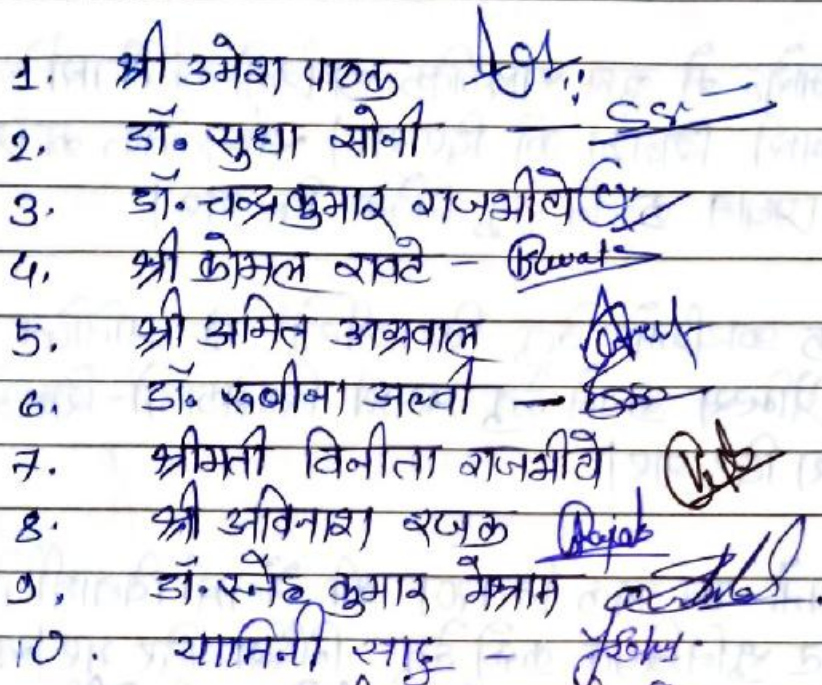 1. श्री उमेश पाठक
2. डॉ. सुधा सोनी —
3. डॉ. चन्द्रकुमार राजभीये
4. श्री कोमल रावटे - Rawate
5. श्री अमित अग्रवाल
6. डॉ. रूबीना अल्वी —
7. श्रीमती विनीता राजभीये
8. श्री अविनाश रजक Rajak
9. डॉ. स्नेह कुमार मेश्राम
10. यामिनी साहू -